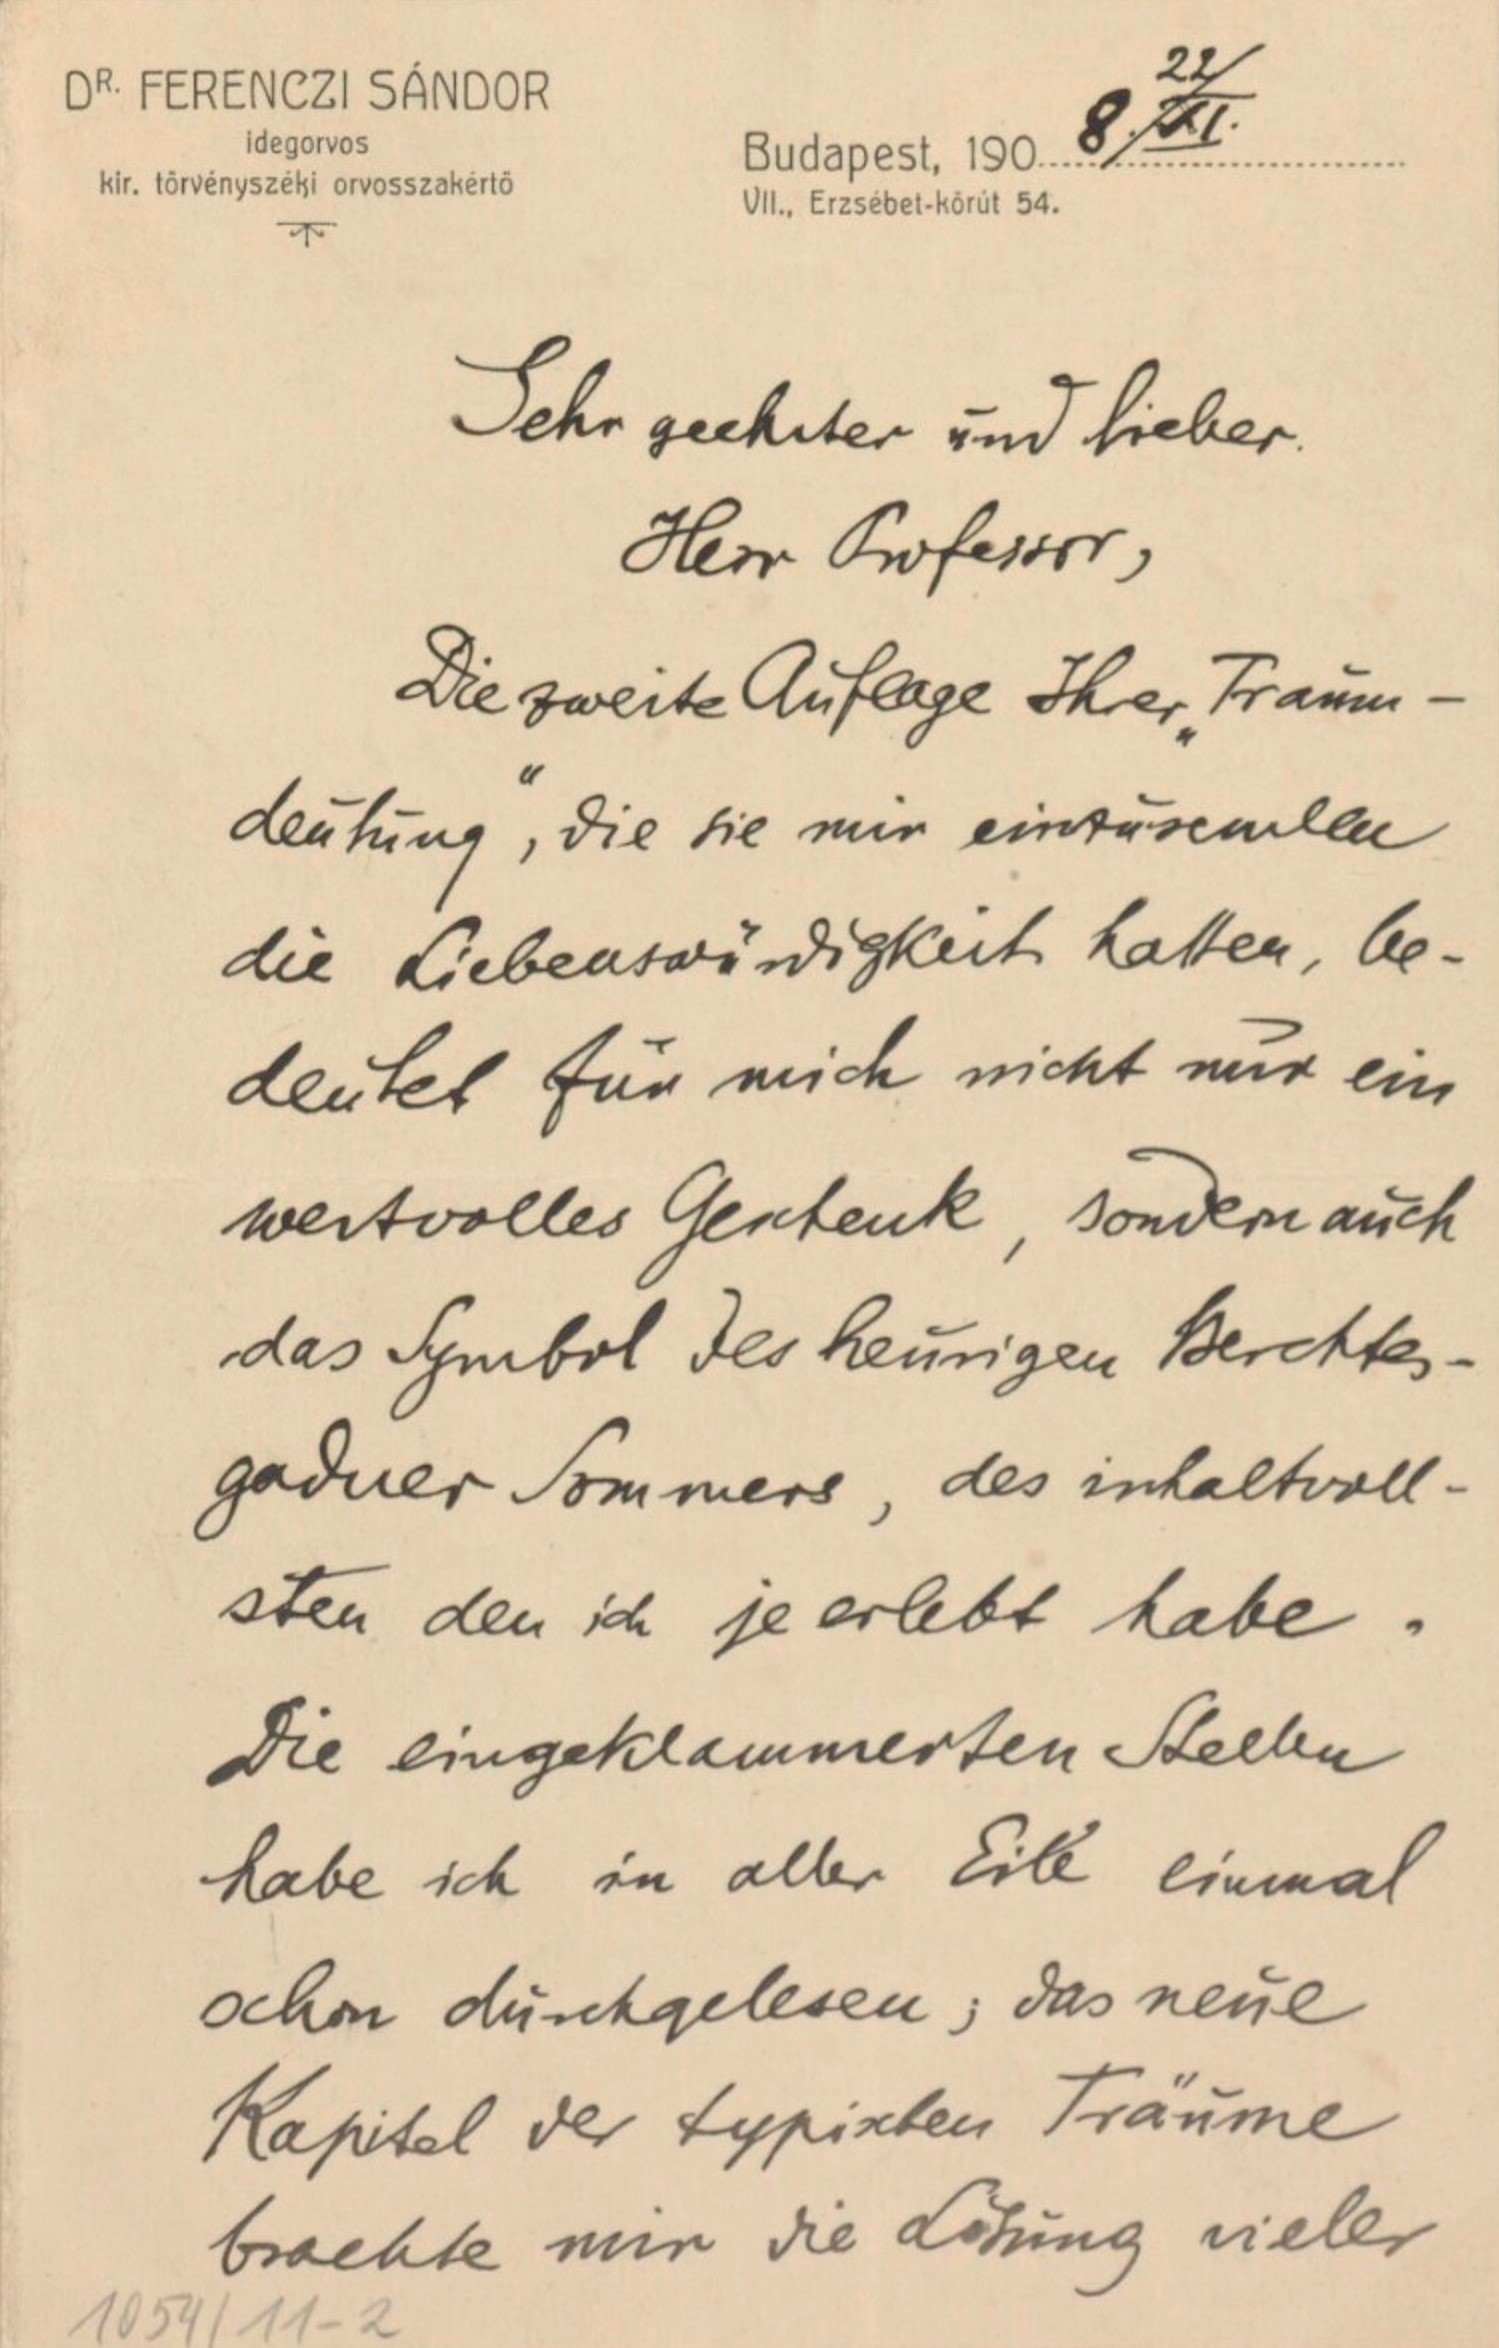 DR. FERENCZI SÁNDOR
idegorvos
kir. törvényszéki orvosszakértő
Budapest, 1908. 22/XI.
VII., Erzsébet-körút 54.
Sehr geehrter und lieber
Herr Professor,
Die zweite Auflage Ihrer „Traum-
deutung“, die sie mir einzusenden
die Liebenswürdigkeit hatten, be-
deutet für mich nicht nur ein
wertvolles Geschenk, sondern auch
das Symbol des heurigen Berchtes-
gadner Sommers, des inhaltvoll-
sten den ich je erlebt habe.
Die eingeklammerten Stellen
habe ich in aller Eile einmal
schon durchgelesen; das neue
Kapitel der typischen Träume
brachte mir die Lösung vieler
1054/11-2